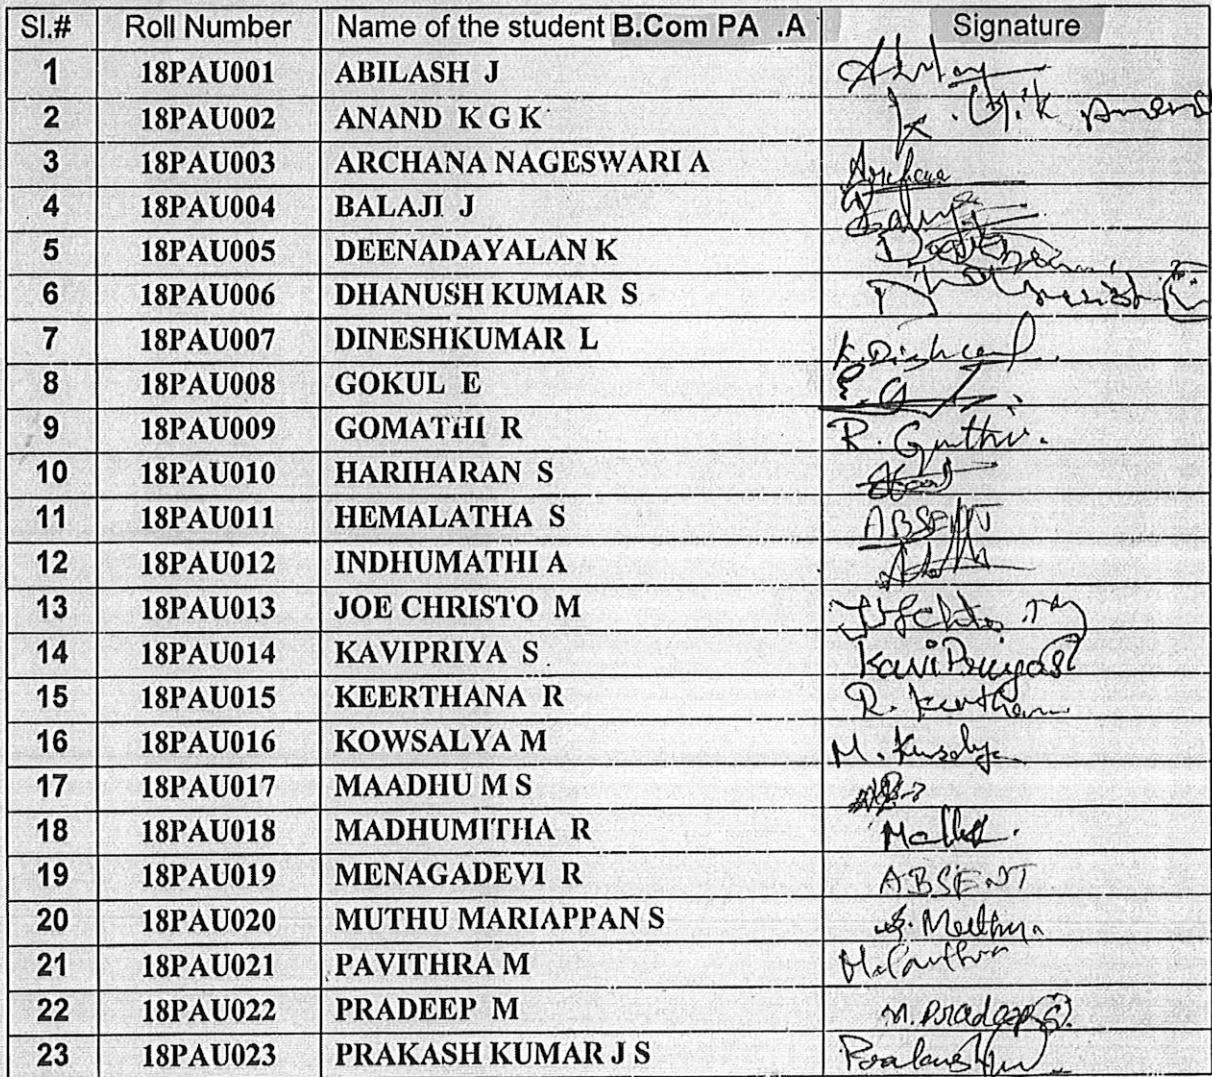 Sl.# Roll Number Name of the student B.Com PA .A Signature
1 18PAU001 ABILASH J
2 18PAU002 ANAND K G K
3 18PAU003 ARCHANA NAGESWARI A
4 18PAU004 BALAJI J
5 18PAU005 DEENADAYALAN K
6 18PAU006 DHANUSH KUMAR S
7 18PAU007 DINESHKUMAR L
8 18PAU008 GOKUL E
9 18PAU009 GOMATHI R R.
10 18PAU010 HARIHARAN S
11 18PAU011 HEMALATHA S ABSENT
12 18PAU012 INDHUMATHI A
13 18PAU013 JOE CHRISTO M
14 18PAU014 KAVIPRIYA S KaviPriya S
15 18PAU015 KEERTHANA R R.
16 18PAU016 KOWSALYA M M.
17 18PAU017 MAADHU M S
18 18PAU018 MADHUMITHA R
19 18PAU019 MENAGADEVI R ABSENT
20 18PAU020 MUTHU MARIAPPAN S S.
21 18PAU021 PAVITHRA M
22 18PAU022 PRADEEP M M. Pradeep
23 18PAU023 PRAKASH KUMAR J S